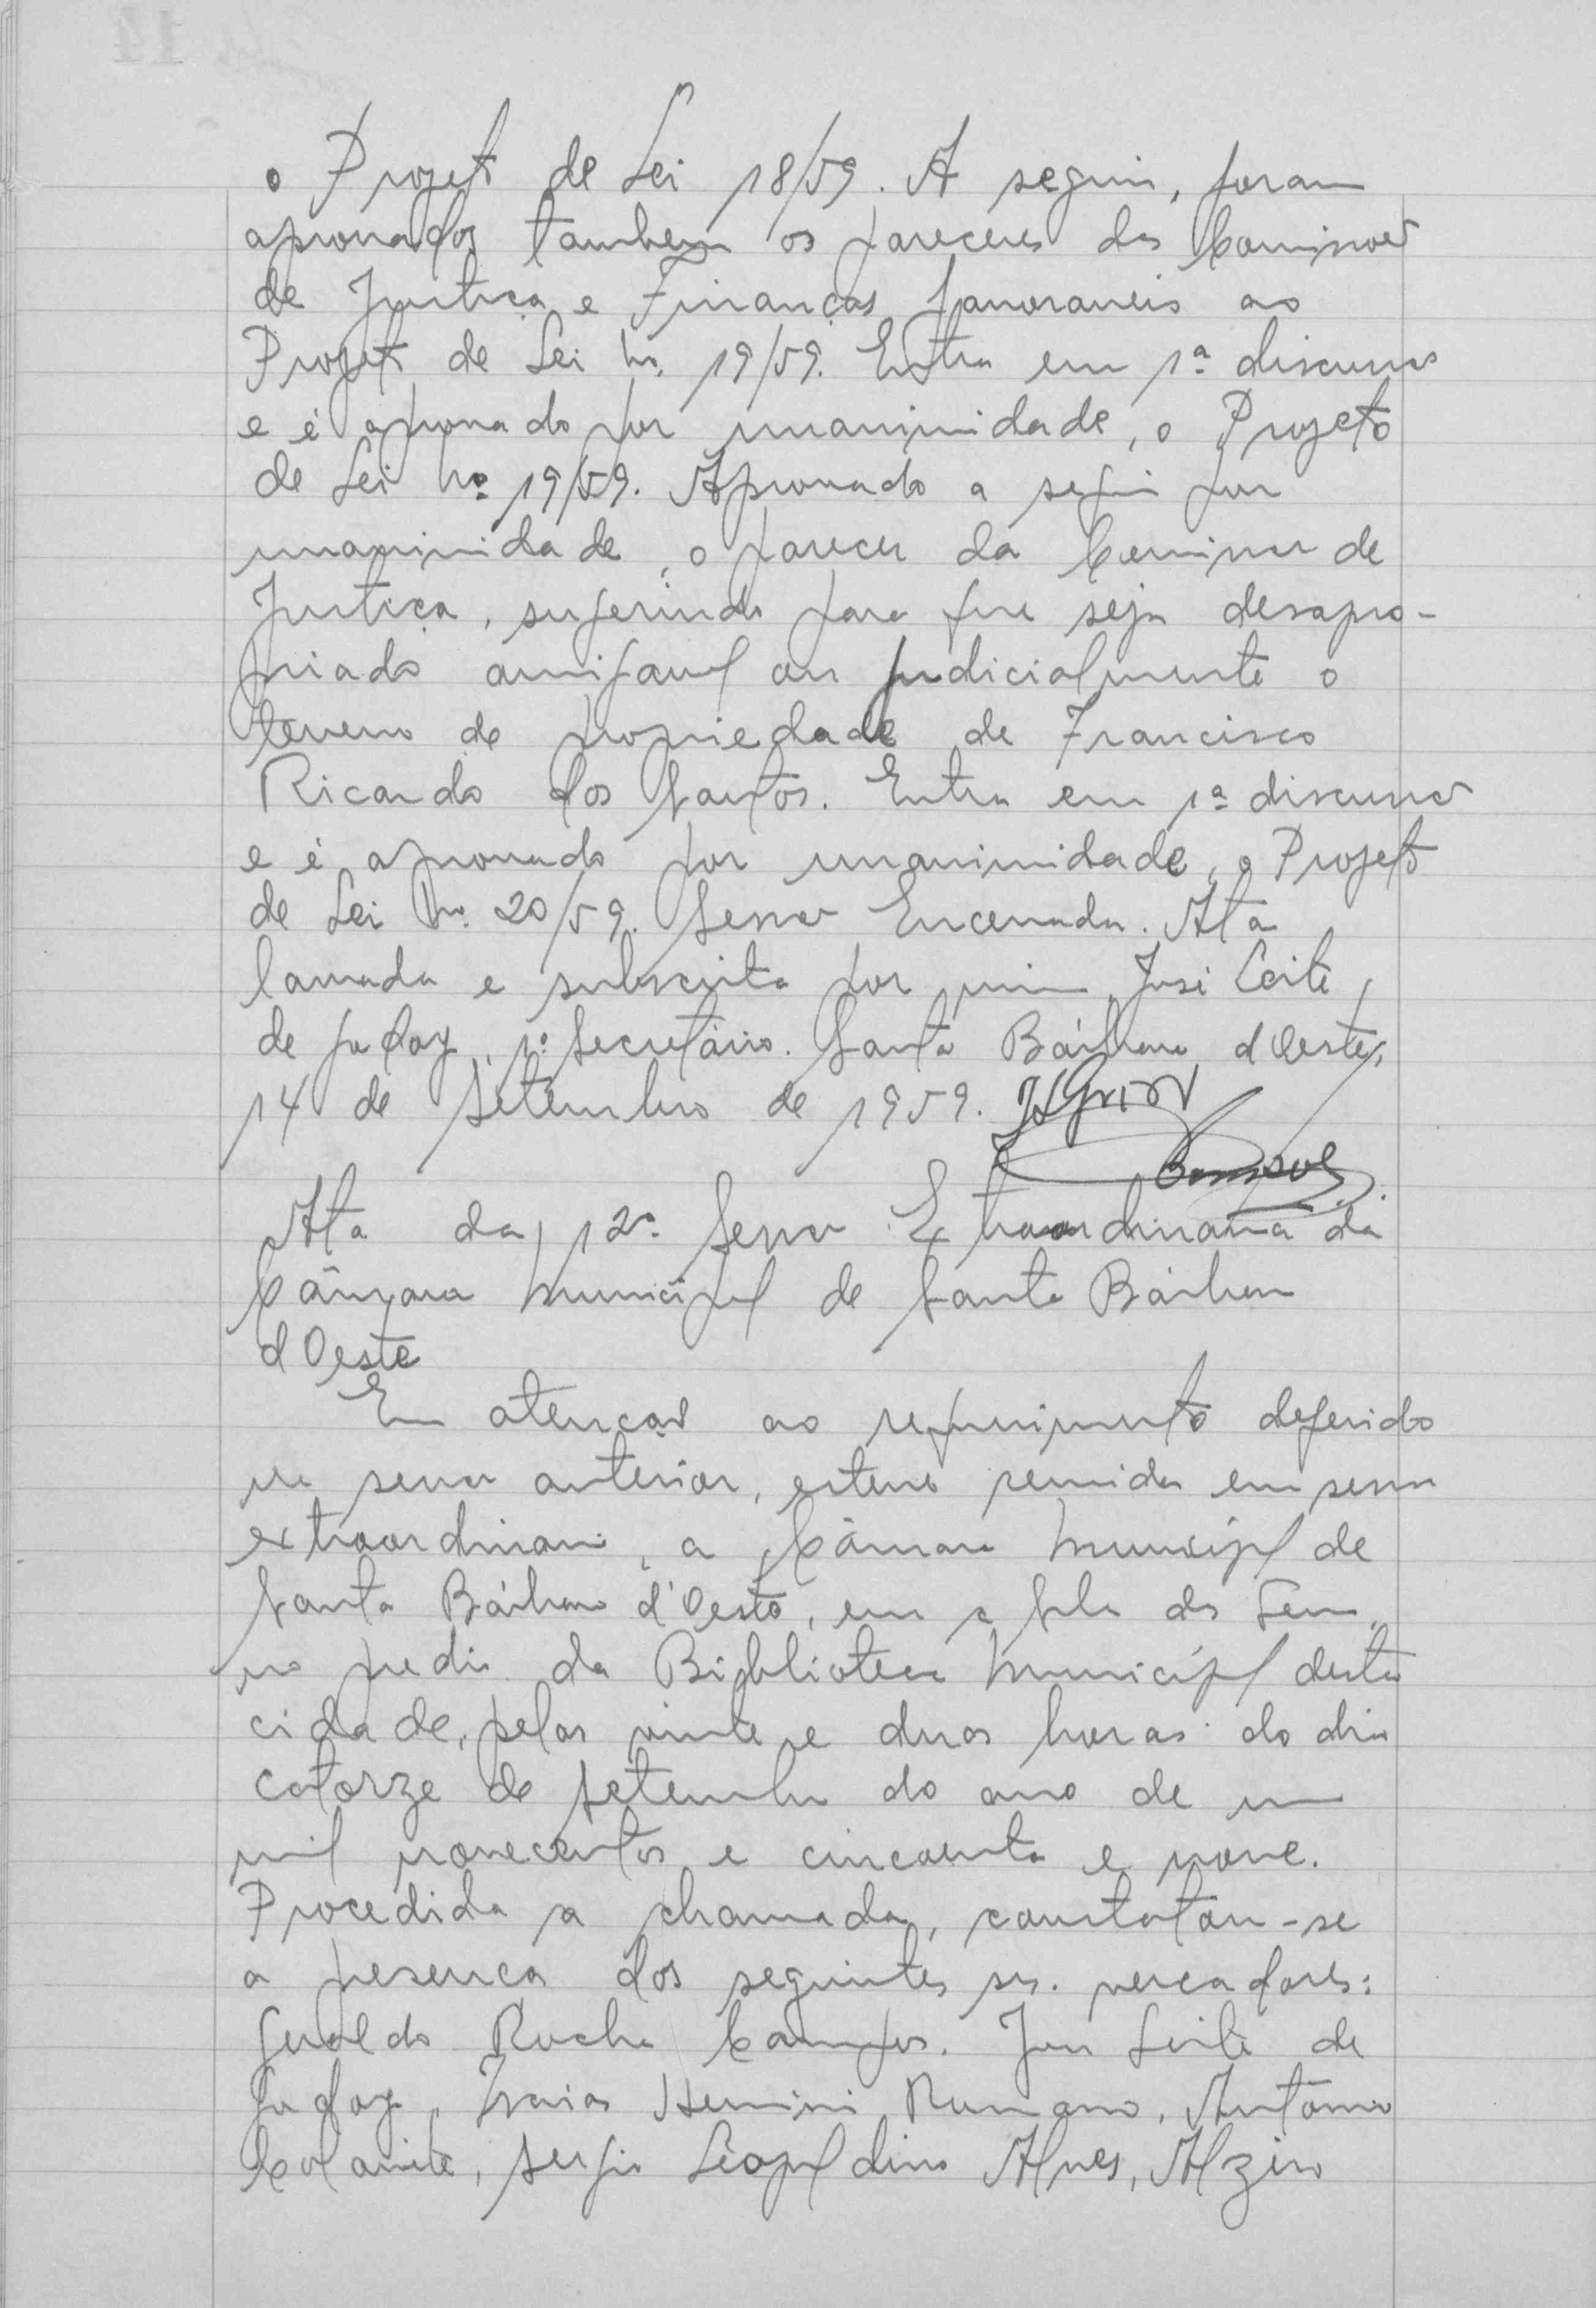 o Projeto de Lei 18/59. A seguir, foram
aprovados tambem os pareceres das Comissões
de Justiça e Finanças favoraveis ao
Projeto de Lei no. 19/59. Entra em 1ª discussão
e é aprovado por unanimidade, o Projeto
de Lei nº 19/59. Aprovado a seguir por
unanimidade, o parecer da Comissão de
Justiça, sugerindo para que seja desapro-
priado amigavel ou judicialmente o
terreno de propriedade de Francisco
Ricardo dos Santos. Entra em 1ª discussão
e é aprovado por unanimidade, o Projeto
de Lei no. 20/59. Sessão Encerrada. Ata
lavrada e subscrita por mim José Leite
de Godoy, 1º Secretário. Santa Bárbara d'Oeste,
14 de Setembro de 1959.
Ata da 12ª Sessão Extraordinaria da
Câmara Municipal de Santa Bárbara
d'Oeste
Em atenção ao requerimento deferido
na sessão anterior, esteve reunida em sessão
extraordinaria, a Câmara Municipal de
Santa Bárbara d'Oeste, em a sala das
no predio da Biblioteca Municipal desta
cidade, pelas vinte e duas horas do dia
catorze de setembro do ano de um
mil novecentos e cincoenta e nove.
Procedida a chamada, constatou-se
a presença dos seguintes srs. vereadores:
Geraldo Rocha Campos. José Leite de
Godoy, Isaias Hermini Romano, Antônio
sergio Leopoldino Alves, Alziro